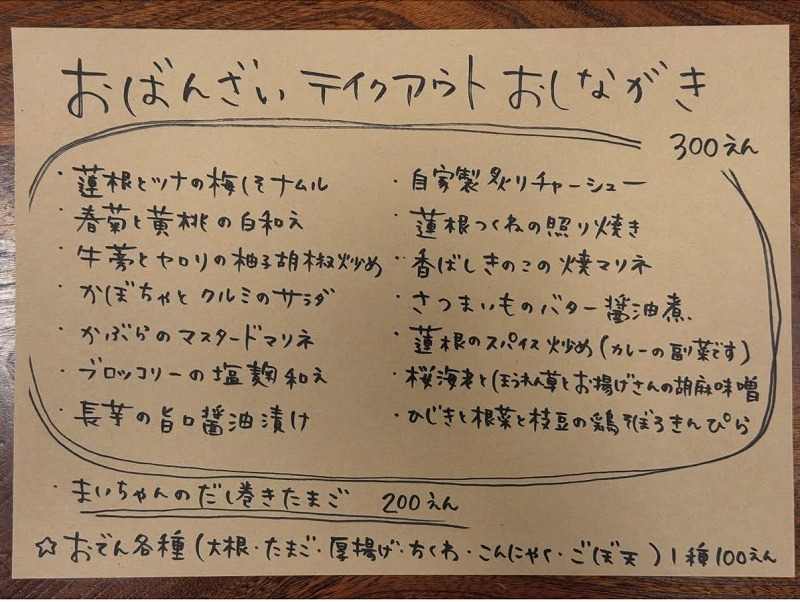 おばんざい テイクアウト おしながき
300えん
・蓮根とツナの梅しそナムル
・春菊と黄桃の白和え
・牛蒡とセロリの柚子胡椒炒め
・かぼちゃとクルミのサラダ
・かぶらのマスタードマリネ
・ブロッコリーの塩麹和え
・長芋の旨口醤油漬け
・自家製炙りチャーシュー
・蓮根つくねの照り焼き
・香ばしきのこの焼マリネ
・さつまいものバター醤油煮
・蓮根のスパイス炒め(カレーの副菜です)
・桜海老とほうれん草とお揚げさんの胡麻味噌
・ひじきと根菜と枝豆の鶏そぼろきんぴら
・まいちゃんのだし巻きたまご 200えん
☆おでん各種(大根・たまご・厚揚げ・ちくわ・こんにゃく・ごぼ天)1種100えん